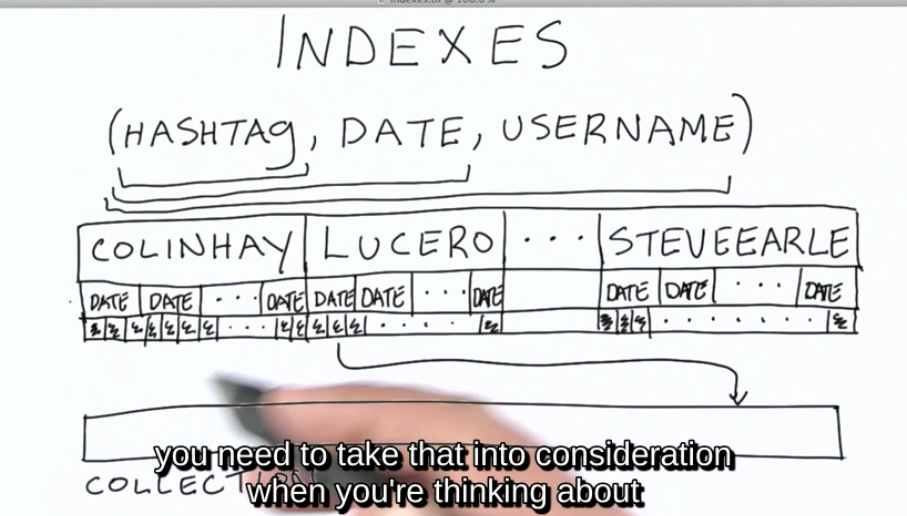 INDEXES
(HASHTAG, DATE, USERNAME)
COLINHAY LUCERO ... STEVEEARLE
DATE DATE ... DATE DATE DATE ... DATE DATE DATE ... DATE
you need to take that into consideration
when you're thinking about